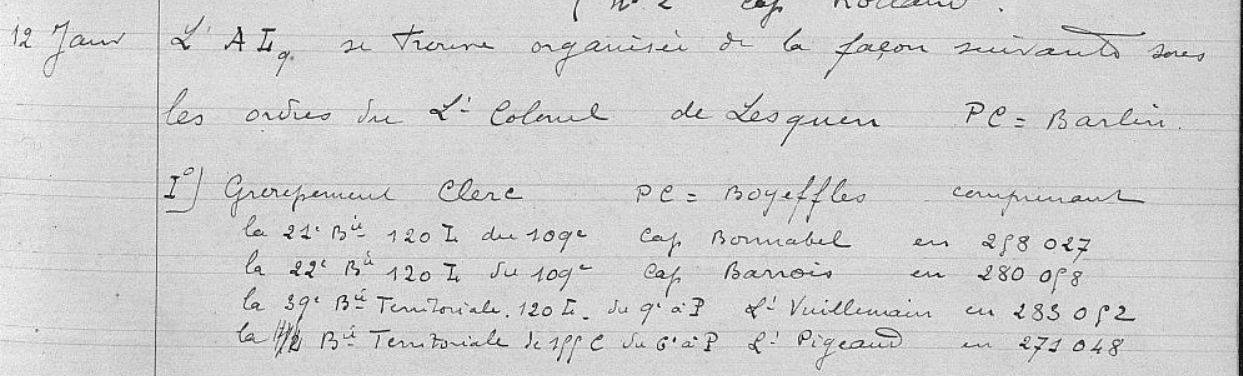 n° 2 Cap Rolland.
12 Janv L'A Lg. se trouve organisée de la façon suivante sous
les ordres du Lt Colonel de Lesquen PC = Barlin.
I°) Groupement Clerc PC = Boyeffles comprenant
la 21e Bie 120 L du 109e Cap Bonnabel en 258 027
la 22e Bie 120 L du 109e Cap Barrois en 280 058
la 39e Bie Territoriale. 120 L. du 9e à P Lt Vuillemain en 283 052
la Bie Territoriale de 155 C du 6e à P Lt Pigeaud en 271 048